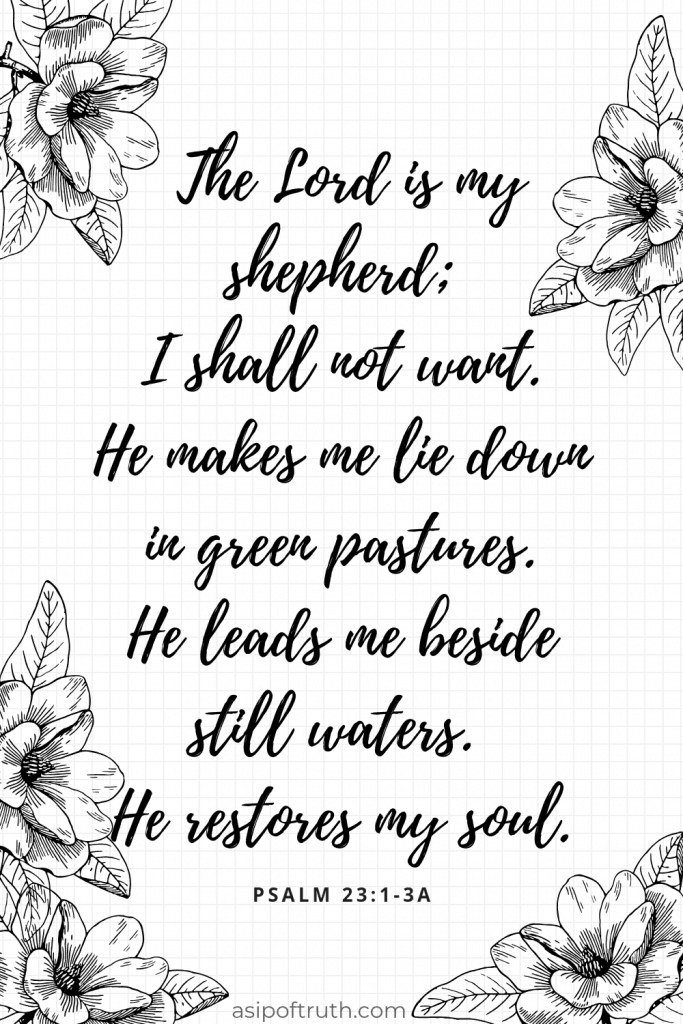 The Lord is my
shepherd;
I shall not want.
He makes me lie down
in green pastures.
He leads me beside
still waters.
He restores my soul.
PSALM 23:1-3A
asipoftruth.com